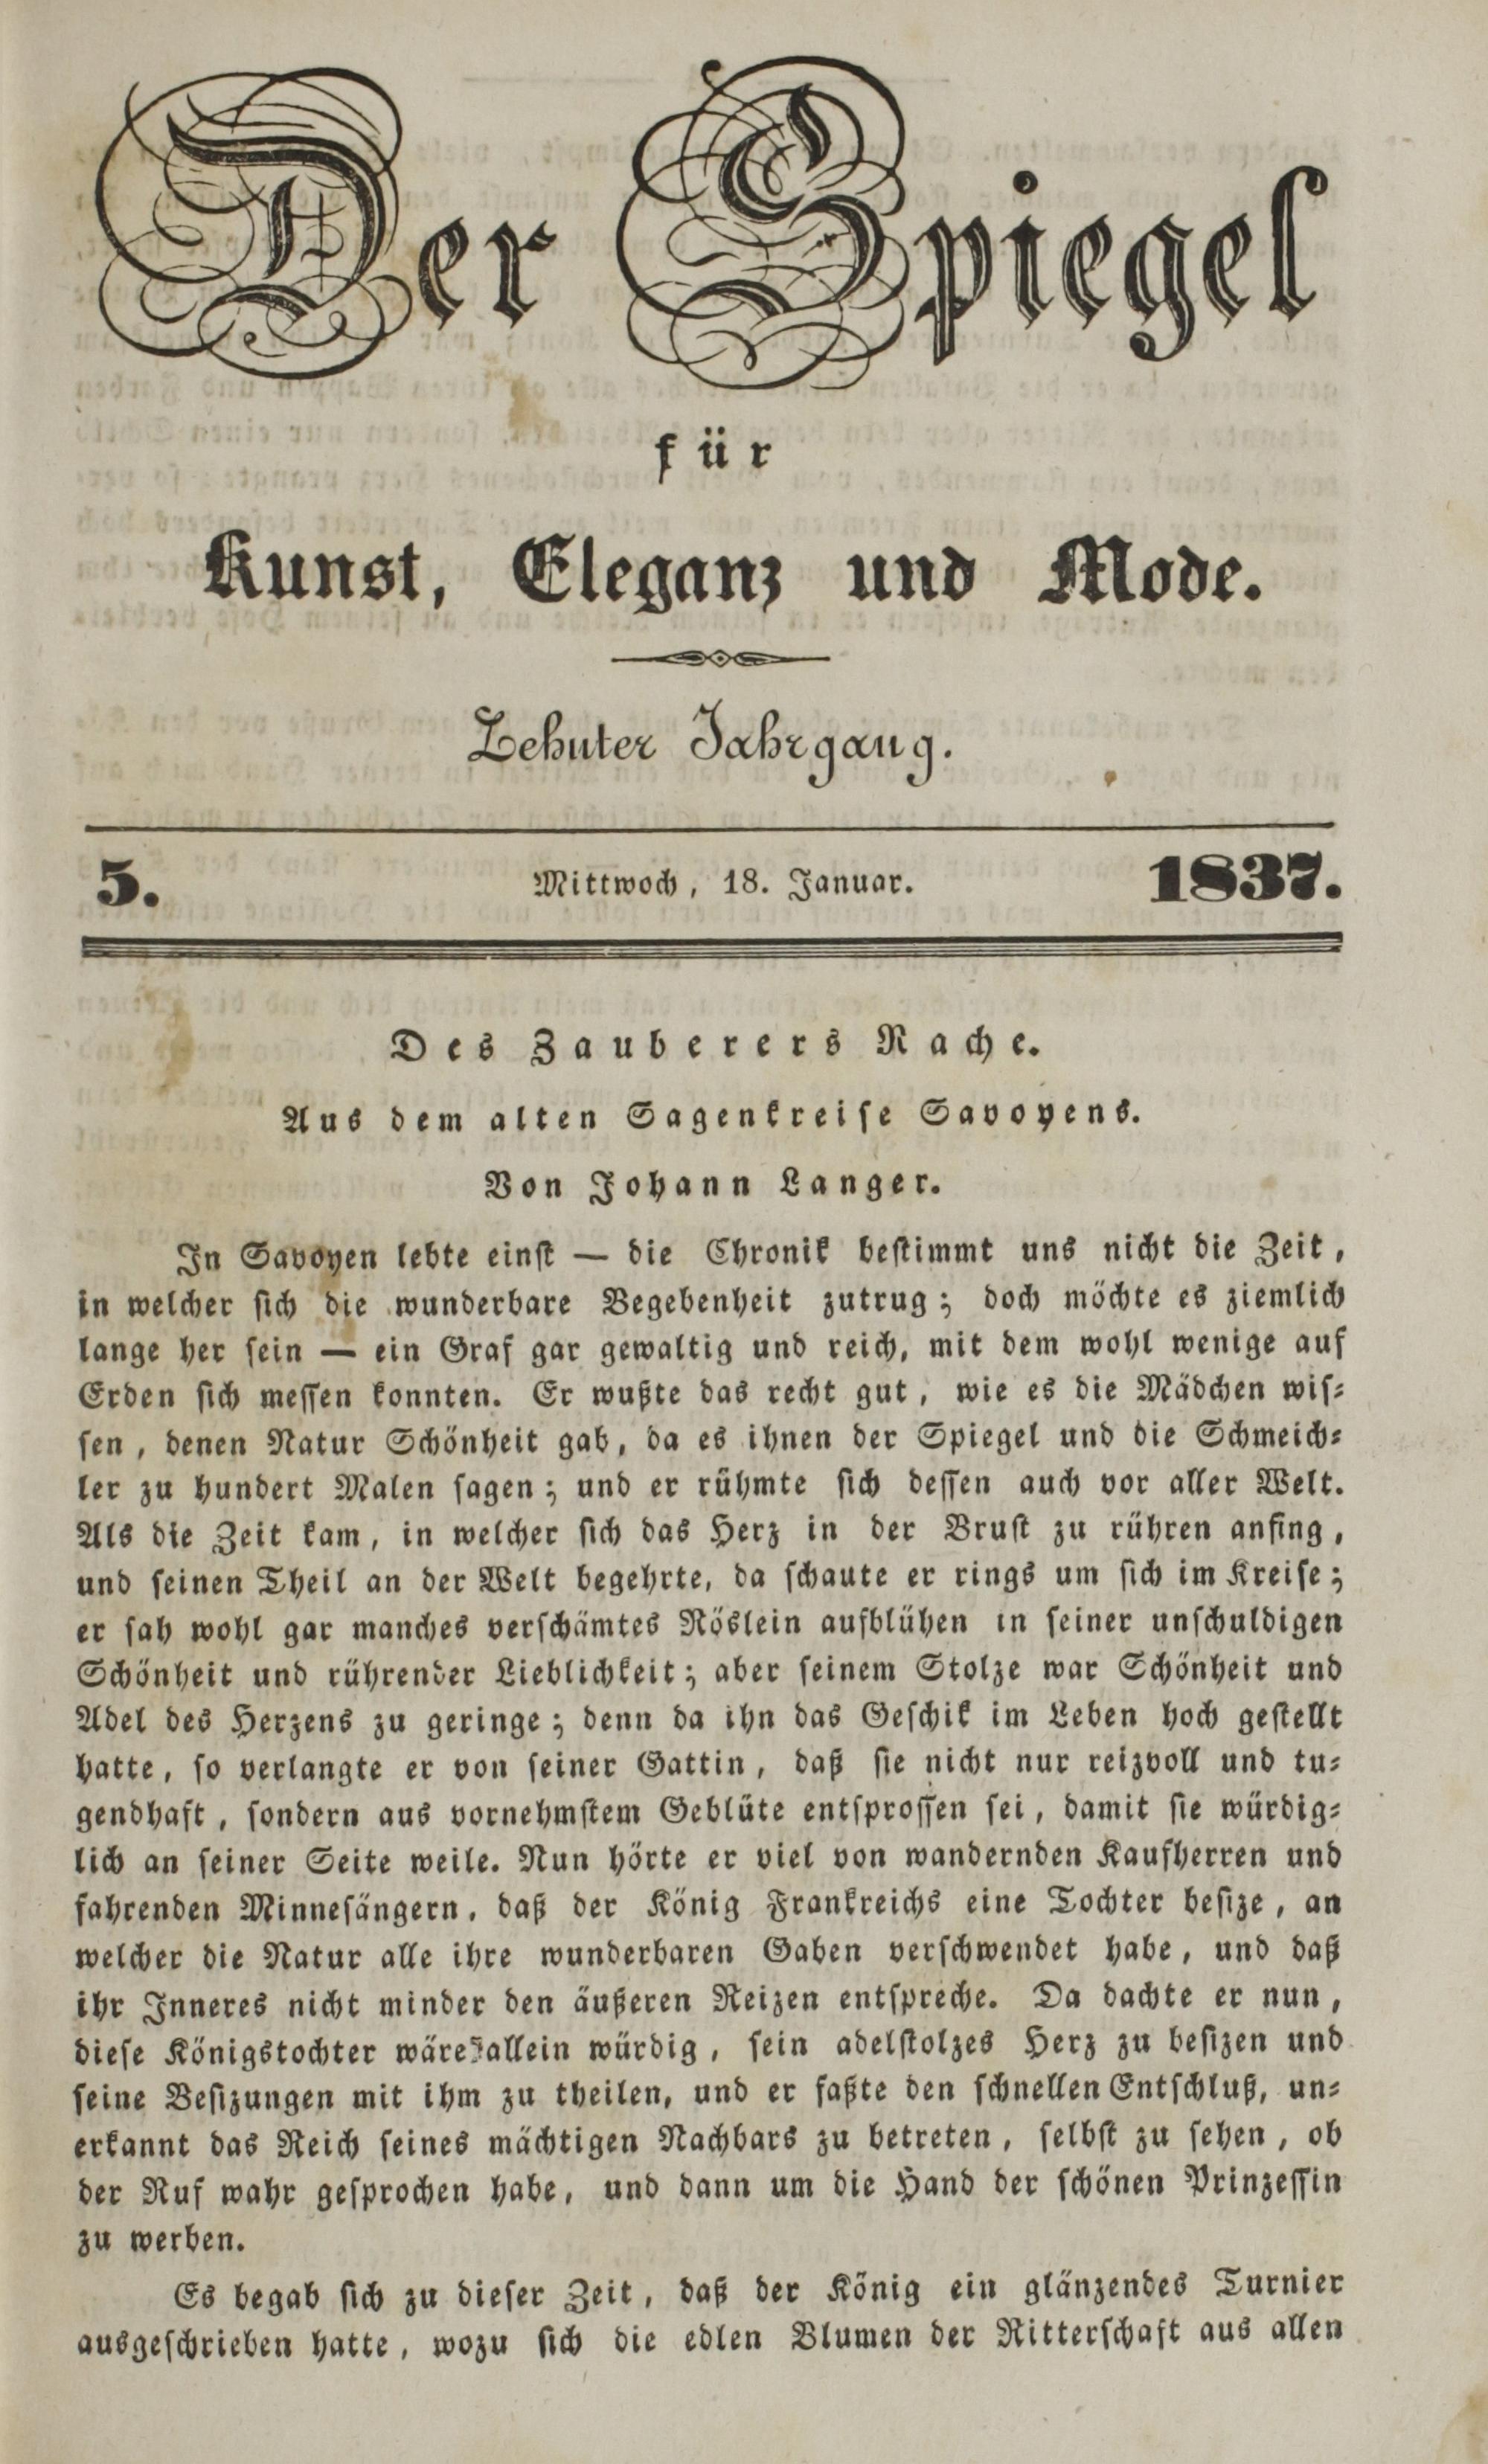 Der Spiegel
für
Kunst, Eleganz und Mode.
Zehnter Jahrgang.
5. Mittwoch, 18. Januar. 1837.
Des Zauberers Rache.
Aus dem alten Sagenkreise Savoyens.
Von Johann Langer.
In Savoyen lebte einst — die Chronik bestimmt uns nicht die Zeit,
in welcher sich die wunderbare Begebenheit zutrug; doch möchte es ziemlich
lange her sein — ein Graf gar gewaltig und reich, mit dem wohl wenige auf
Erden sich messen konnten. Er wußte das recht gut, wie es die Mädchen wis-
sen, denen Natur Schönheit gab, da es ihnen der Spiegel und die Schmeich-
ler zu hundert Malen sagen; und er rühmte sich dessen auch vor aller Welt.
Als die Zeit kam, in welcher sich das Herz in der Brust zu rühren anfing,
und seinen Theil an der Welt begehrte, da schaute er rings um sich im Kreise;
er sah wohl gar manches verschämtes Röslein aufblühen in seiner unschuldigen
Schönheit und rührender Lieblichkeit; aber seinem Stolze war Schönheit und
Adel des Herzens zu geringe; denn da ihn das Geschik im Leben hoch gestellt
hatte, so verlangte er von seiner Gattin, daß sie nicht nur reizvoll und tu-
gendhaft, sondern aus vornehmstem Geblüte entsprossen sei, damit sie würdig-
lich an seiner Seite weile. Nun hörte er viel von wandernden Kaufherren und
fahrenden Minnesängern, daß der König Frankreichs eine Tochter besize, an
welcher die Natur alle ihre wunderbaren Gaben verschwendet habe, und daß
ihr Inneres nicht minder den äußeren Reizen entspreche. Da dachte er nun,
diese Königstochter wäre allein würdig, sein adelstolzes Herz zu besizen und
seine Besizungen mit ihm zu theilen, und er faßte den schnellen Entschluß, un-
erkannt das Reich seines mächtigen Nachbars zu betreten, selbst zu sehen, ob
der Ruf wahr gesprochen habe, und dann um die Hand der schönen Prinzessin
zu werben.
Es begab sich zu dieser Zeit, daß der König ein glänzendes Turnier
ausgeschrieben hatte, wozu sich die edlen Blumen der Ritterschaft aus allen